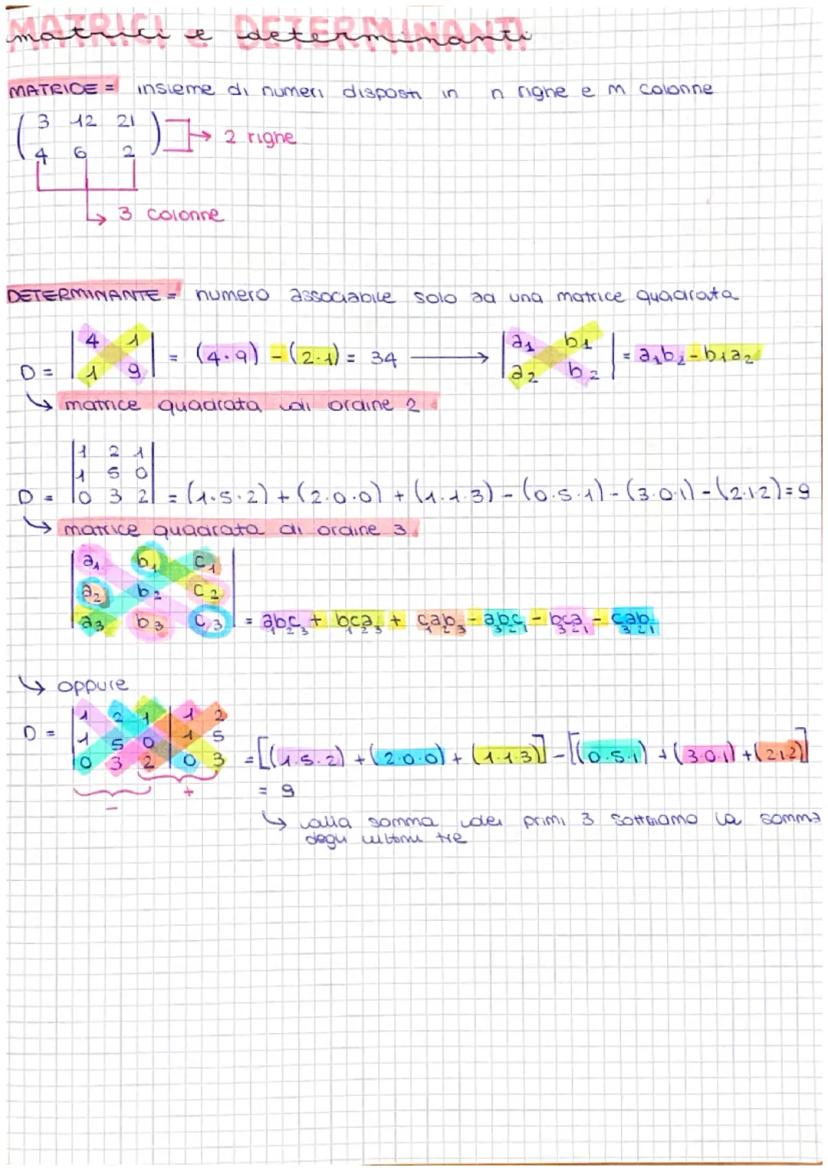 MATRICI e DETERMINANTI
matrici e determinanti
MATRICE = insieme di numeri disposti in n righe e m colonne
3 12 21
4 6 2
→ 2 righe
↳ 3 colonne
DETERMINANTE = numero associabile solo ad una matrice quadrata
D = |4 1| = (4·9) - (2·1) = 34 → |a₁ b₁| = a₁b₂ - b₁a₂
|1 9| |a₂ b₂|
↳ matrice quadrata di ordine 2
|1 2 1|
|1 5 0|
D = |0 3 2| = (1·5·2) + (2·0·0) + (1·1·3) - (0·5·1) - (3·0·1) - (2·1·2) = 9
↳ matrice quadrata di ordine 3
|a₁ b₁ c₁|
|a₂ b₂ c₂|
|a₃ b₃ c₃| = a₁b₂c₃ + b₁c₂a₃ + c₁a₂b₃ - a₃b₂c₁ - b₃c₂a₁ - c₃a₂b₁
↳ oppure
|1 2 1| 1 2
D = |1 5 0| 1 5
|0 3 2| 0 3 = [(1·5·2) + (2·0·0) + (1·1·3)] - [(0·5·1) + (3·0·1) + (2·1·2)]
- + = 9
↳ alla somma dei primi 3 sottriamo la somma
degli ultimi tre